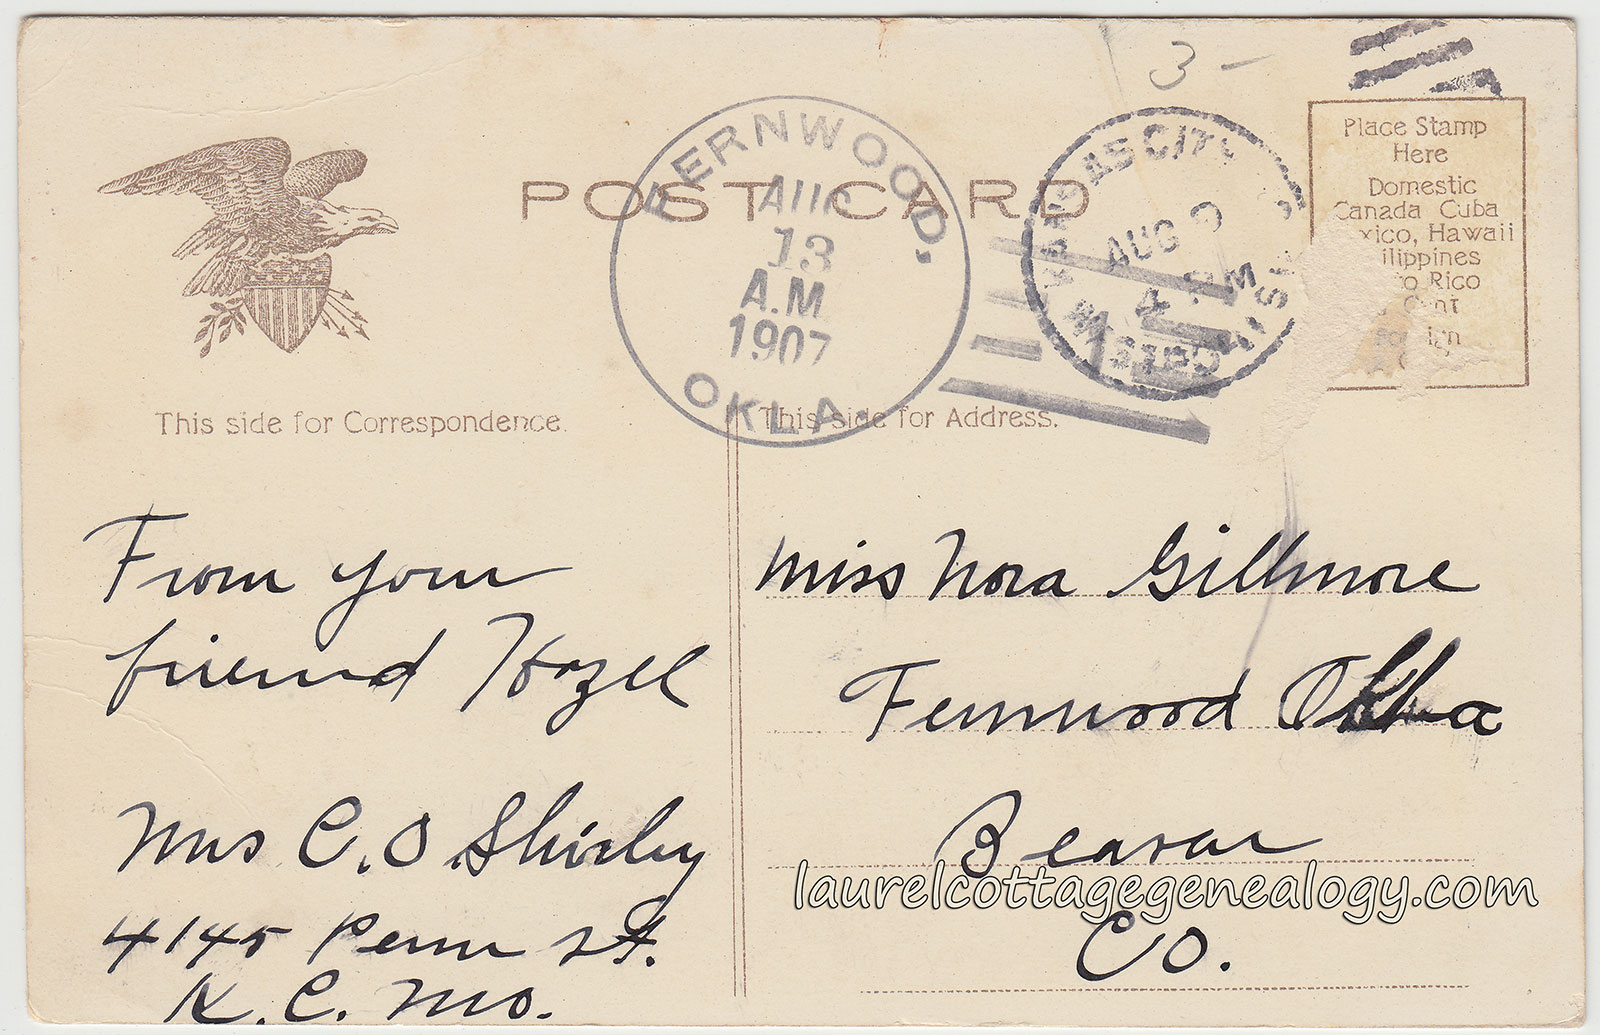 3 -
POST CARD
FERNWOOD,
AUG
13
A.M
1907
OKLA.
KANSAS CITY
AUG 9
4 PM
Place Stamp
Here
Domestic
Canada Cuba
Hawaii
Rico
This side for Correspondence.
This side for Address.
From your
friend Hazel
Mrs C. O. Shirley
4145 Penn St.
K. C. Mo.
Miss Nora Gillmore
Fernwood Okla
Beaver
Co.
laurelcottagegenealogy.com